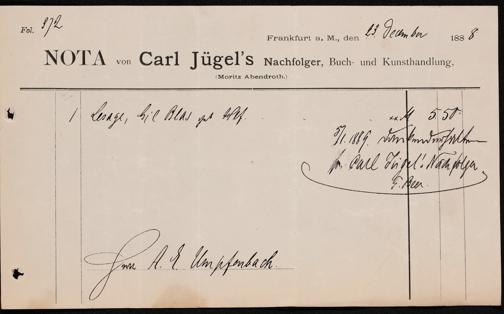 Fol. 372
Frankfurt a. M., den 23 December 1888
NOTA von Carl Jügel's Nachfolger, Buch- und Kunsthandlung.
(Moritz Abendroth.)
1 Lesage, Gil Blas M 5.50
5/1. 1889. dankend erhalten
Carl Jügel's Nachfolger
Herrn A. E. Umpfenbach.